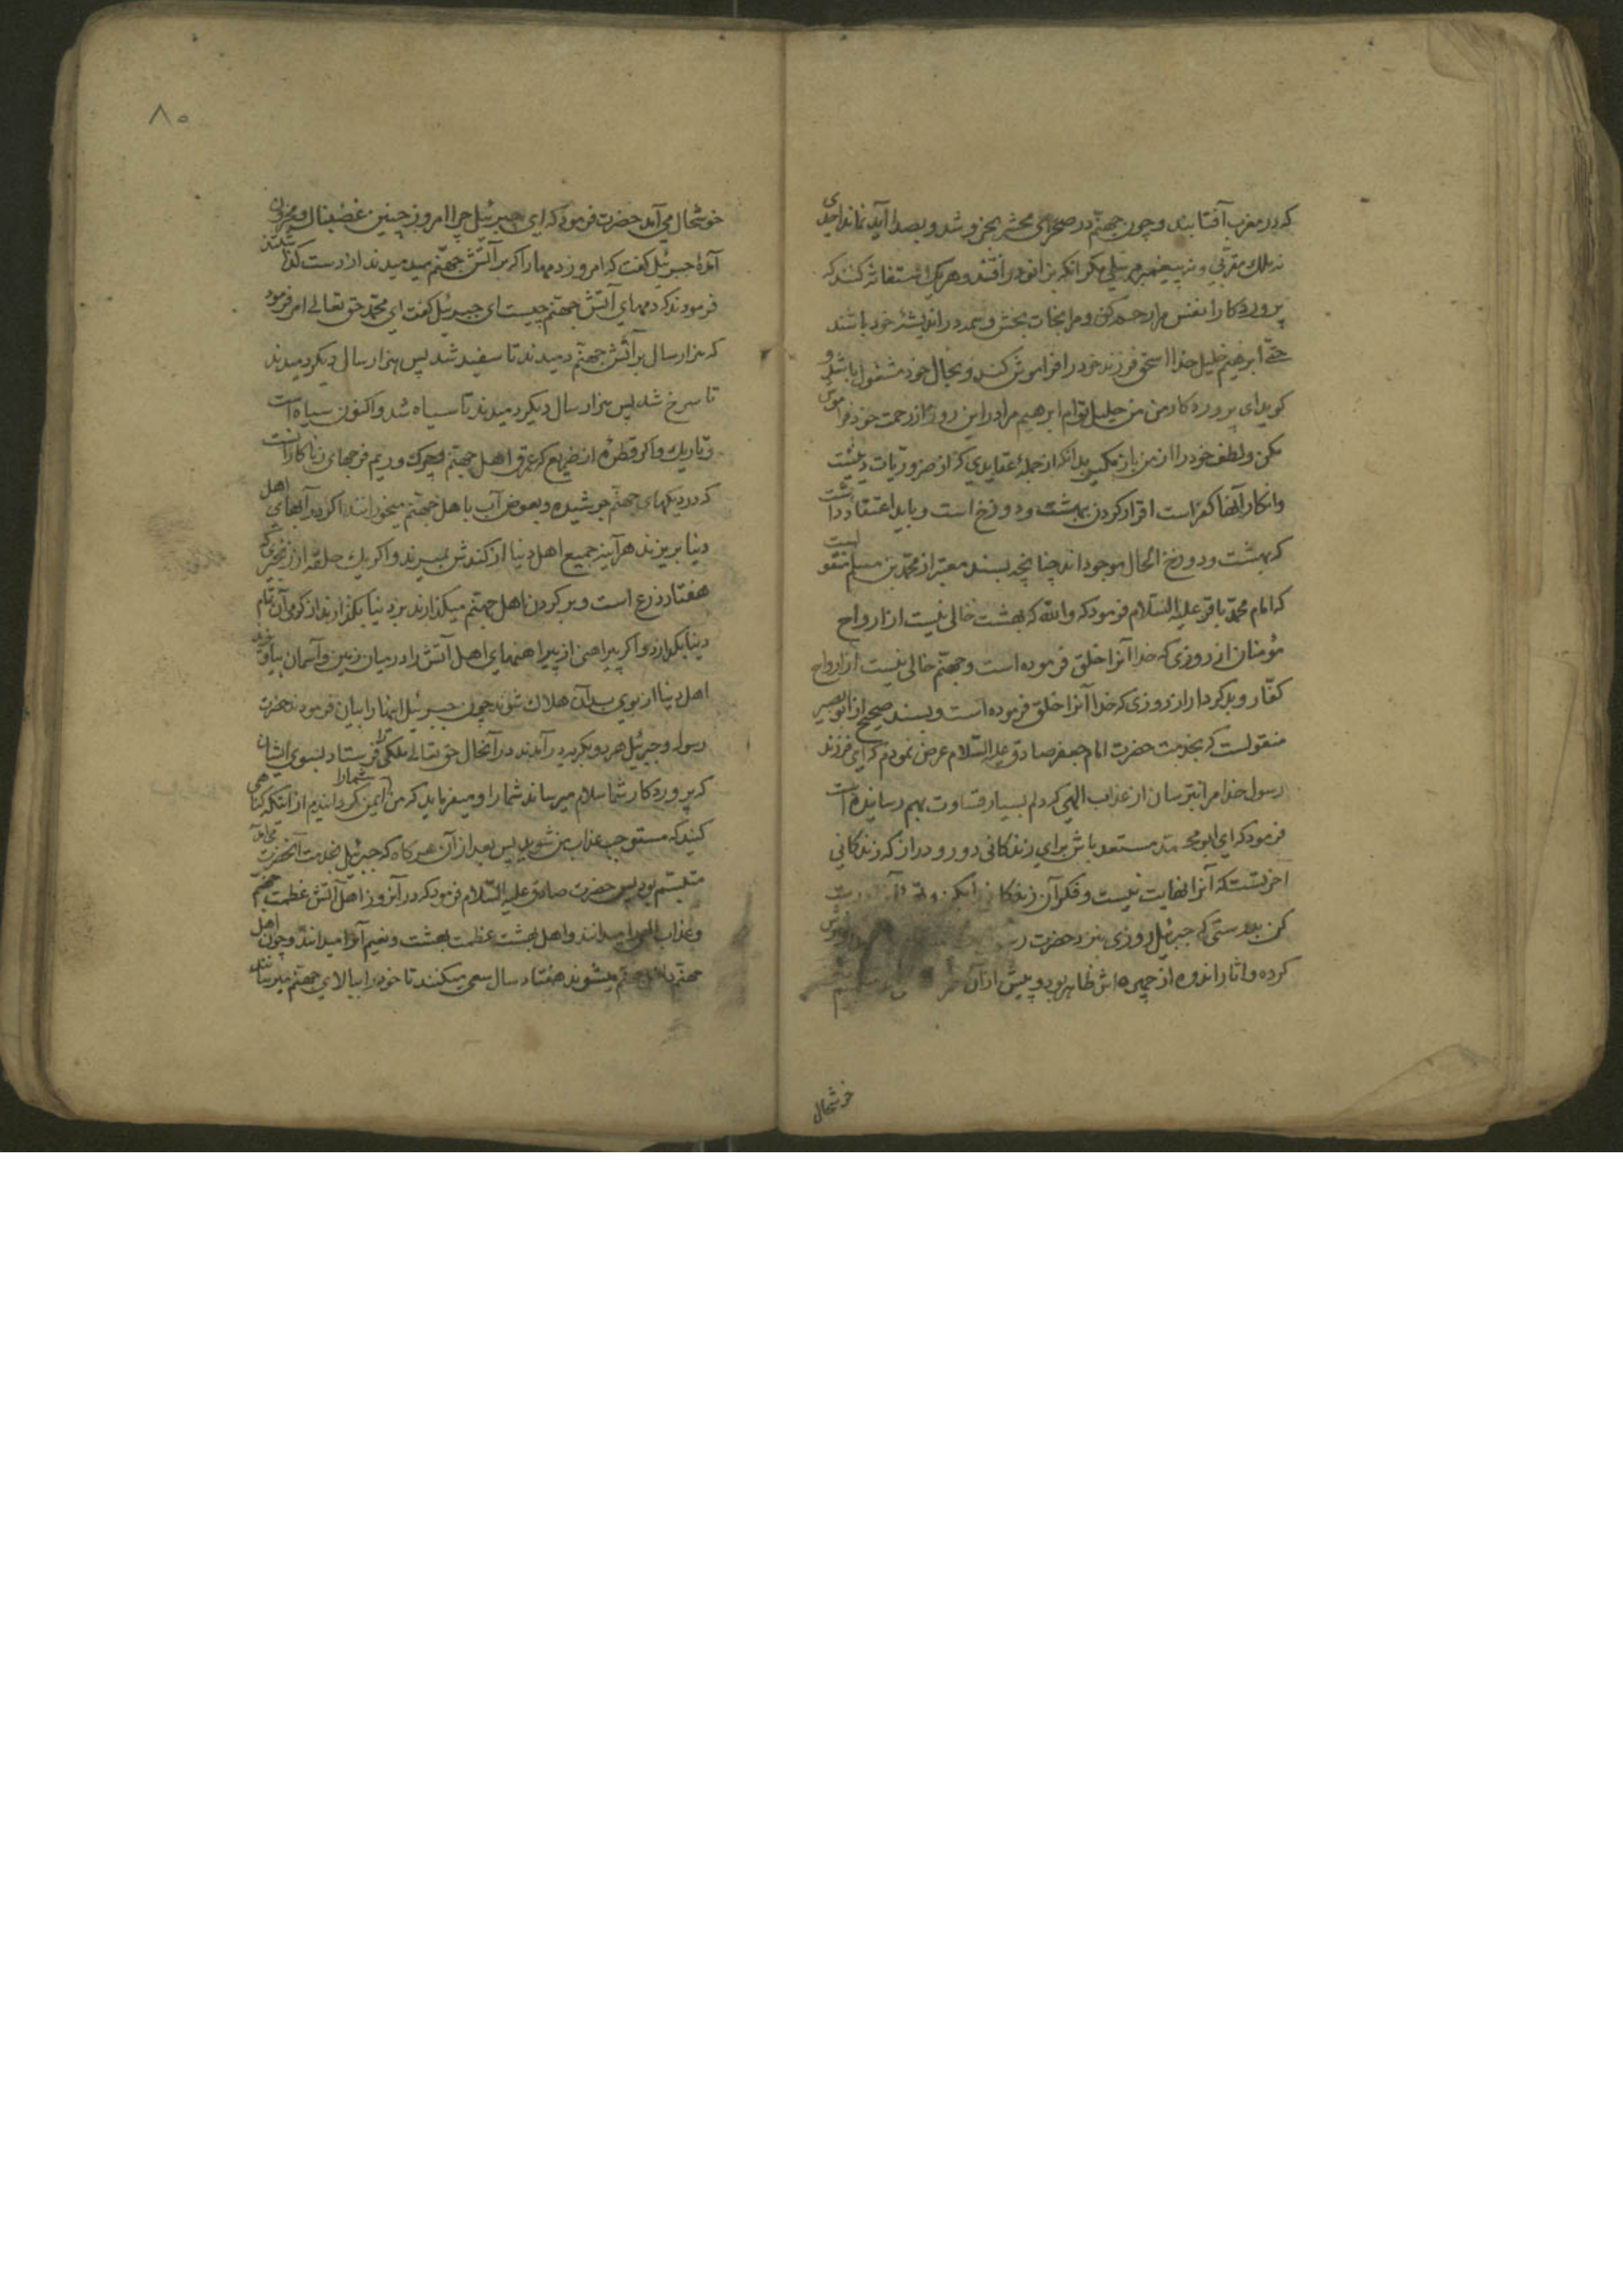 که در مغرب آفتابند و چون جهنم در صحرای محشر بخروشد و بصدا آید نماند احدی
نه ملک مقربی و نه پیغمبر مرسلی مکر انکه بزانو در افتند و هریک استغاثه کنند که
پروردکارا نفس مرا رحم کن و مرا نجات بخش و همه در اندیشهٔ خود باشند
حتی ابرهیم خلیل خدا اسحق فرزند خود را فراموش کند و بحال خود مشغول باشد و
کوید ای پروردکار من من خلیل توام ابرهیم مرا در این روز از رحمت خود فراموش
مکن و لطف خود را از من باز مکیر بدانکه از جملهٔ عقایدی که از ضروریات دینست
و انکار آنها کفر است اقرار کردن ببهشت و دوزخ است و باید اعتقاد داشت
که بهشت و دوزخ الحال موجود اند چنانچه بسند معتبر از محمد بن مسلم منقولست
که امام محمد باقر علیه السلام فرمود که والله که بهشت خالی نیست از ارواح
مؤمنان از روزی که خدا آنرا خلق فرموده است و جهنم خالی نیست از ارواح
کفار و بدکردار از روزی که خدا آنرا خلق فرموده است و بسند صحیح از ابو بصیر
منقولست که بخدمت حضرت امام جعفر صادق علیه السلام عرض نمودم که ای فرزند
رسول خدا مرا بترسان از عذاب الهی که دلم بسیار قساوت بهم رسانیده است
فرمود که ای ابو محمد مستعد باش برای زندکانی دور و دراز که زندکانی
آخرتست که آنرا نهایت نیست و فکر آن زندکانی را بکن و
کن بدرستی که جبرئیل روزی بنزد حضرت
کرده و اثار اندوه از چهره اش ظاهر بود و پیش از آن
خوشحال
۸۵
خوشحال می آمد حضرت فرمود که ای جبرئیل چرا امروز چنین غضبناک و محزون
آمدهٔ جبرئیل کفت که امروز دمهارا که بر آتش جهنم میدمیدند از دست کذاشتند
فرمودند که دمهای آتش جهنم چیست ای جبرئیل کفت ای محمد حق تعالی امر فرمود
که هزار سال بر آتش جهنم دمیدند تا سفید شد پس هزار سال دیکر دمیدند
تا سرخ شد پس هزار سال دیکر دمیدند تا سیاه شد و اکنون سیاه است
و تاریک و اکر قطرهٔ از ضریع که عرق اهل جهنم و چرک و ریم فرجهای زناکارانست
که در دیکهای جهنم جوشیده و بعوض آب باهل جهنم میخورانند اکر در آبهای اهل
دنیا بریزند هرآینه جمیع اهل دنیا از کندش بمیرند و اکر یک حلقه از زنجیری که
هفتاد ذرع است و بر کردن اهل جهنم میکذارند بر دنیا بکذارند از کرمی آن تمام
دنیا بکدازد و اکر پیراهنی از پیراهنهای اهل آتش را در میان زمین و آسمان بیاویزند
اهل دنیا از بوی بد آن هلاک شوند چون جبرئیل اینها را بیان فرمود حضرت
رسول و جبرئیل هر دو بکریه در آمدند در آنحال حق تعالی ملکی را فرستاد بسوی ایشان
که پروردکار شما سلام میرساند شمارا و میفرماید که من شمارا ایمن کردانیدم از اینکه کناهی
کنید که مستوجب عذاب من شوید پس بعد از آن هرکاه که جبرئیل بخدمت آنحضرت می آمد
متبسم بود پس حضرت صادق علیه السلام فرمود که در آنروز اهل آتش عظمت جهنم
و عذاب الهی را میدانند و اهل بهشت عظمت بهشت و نعیم آنرا میدانند و چون اهل
جهنم داخل جهنم میشوند هفتاد سال سعی میکنند تا خود را ببالای جهنم میرسانند